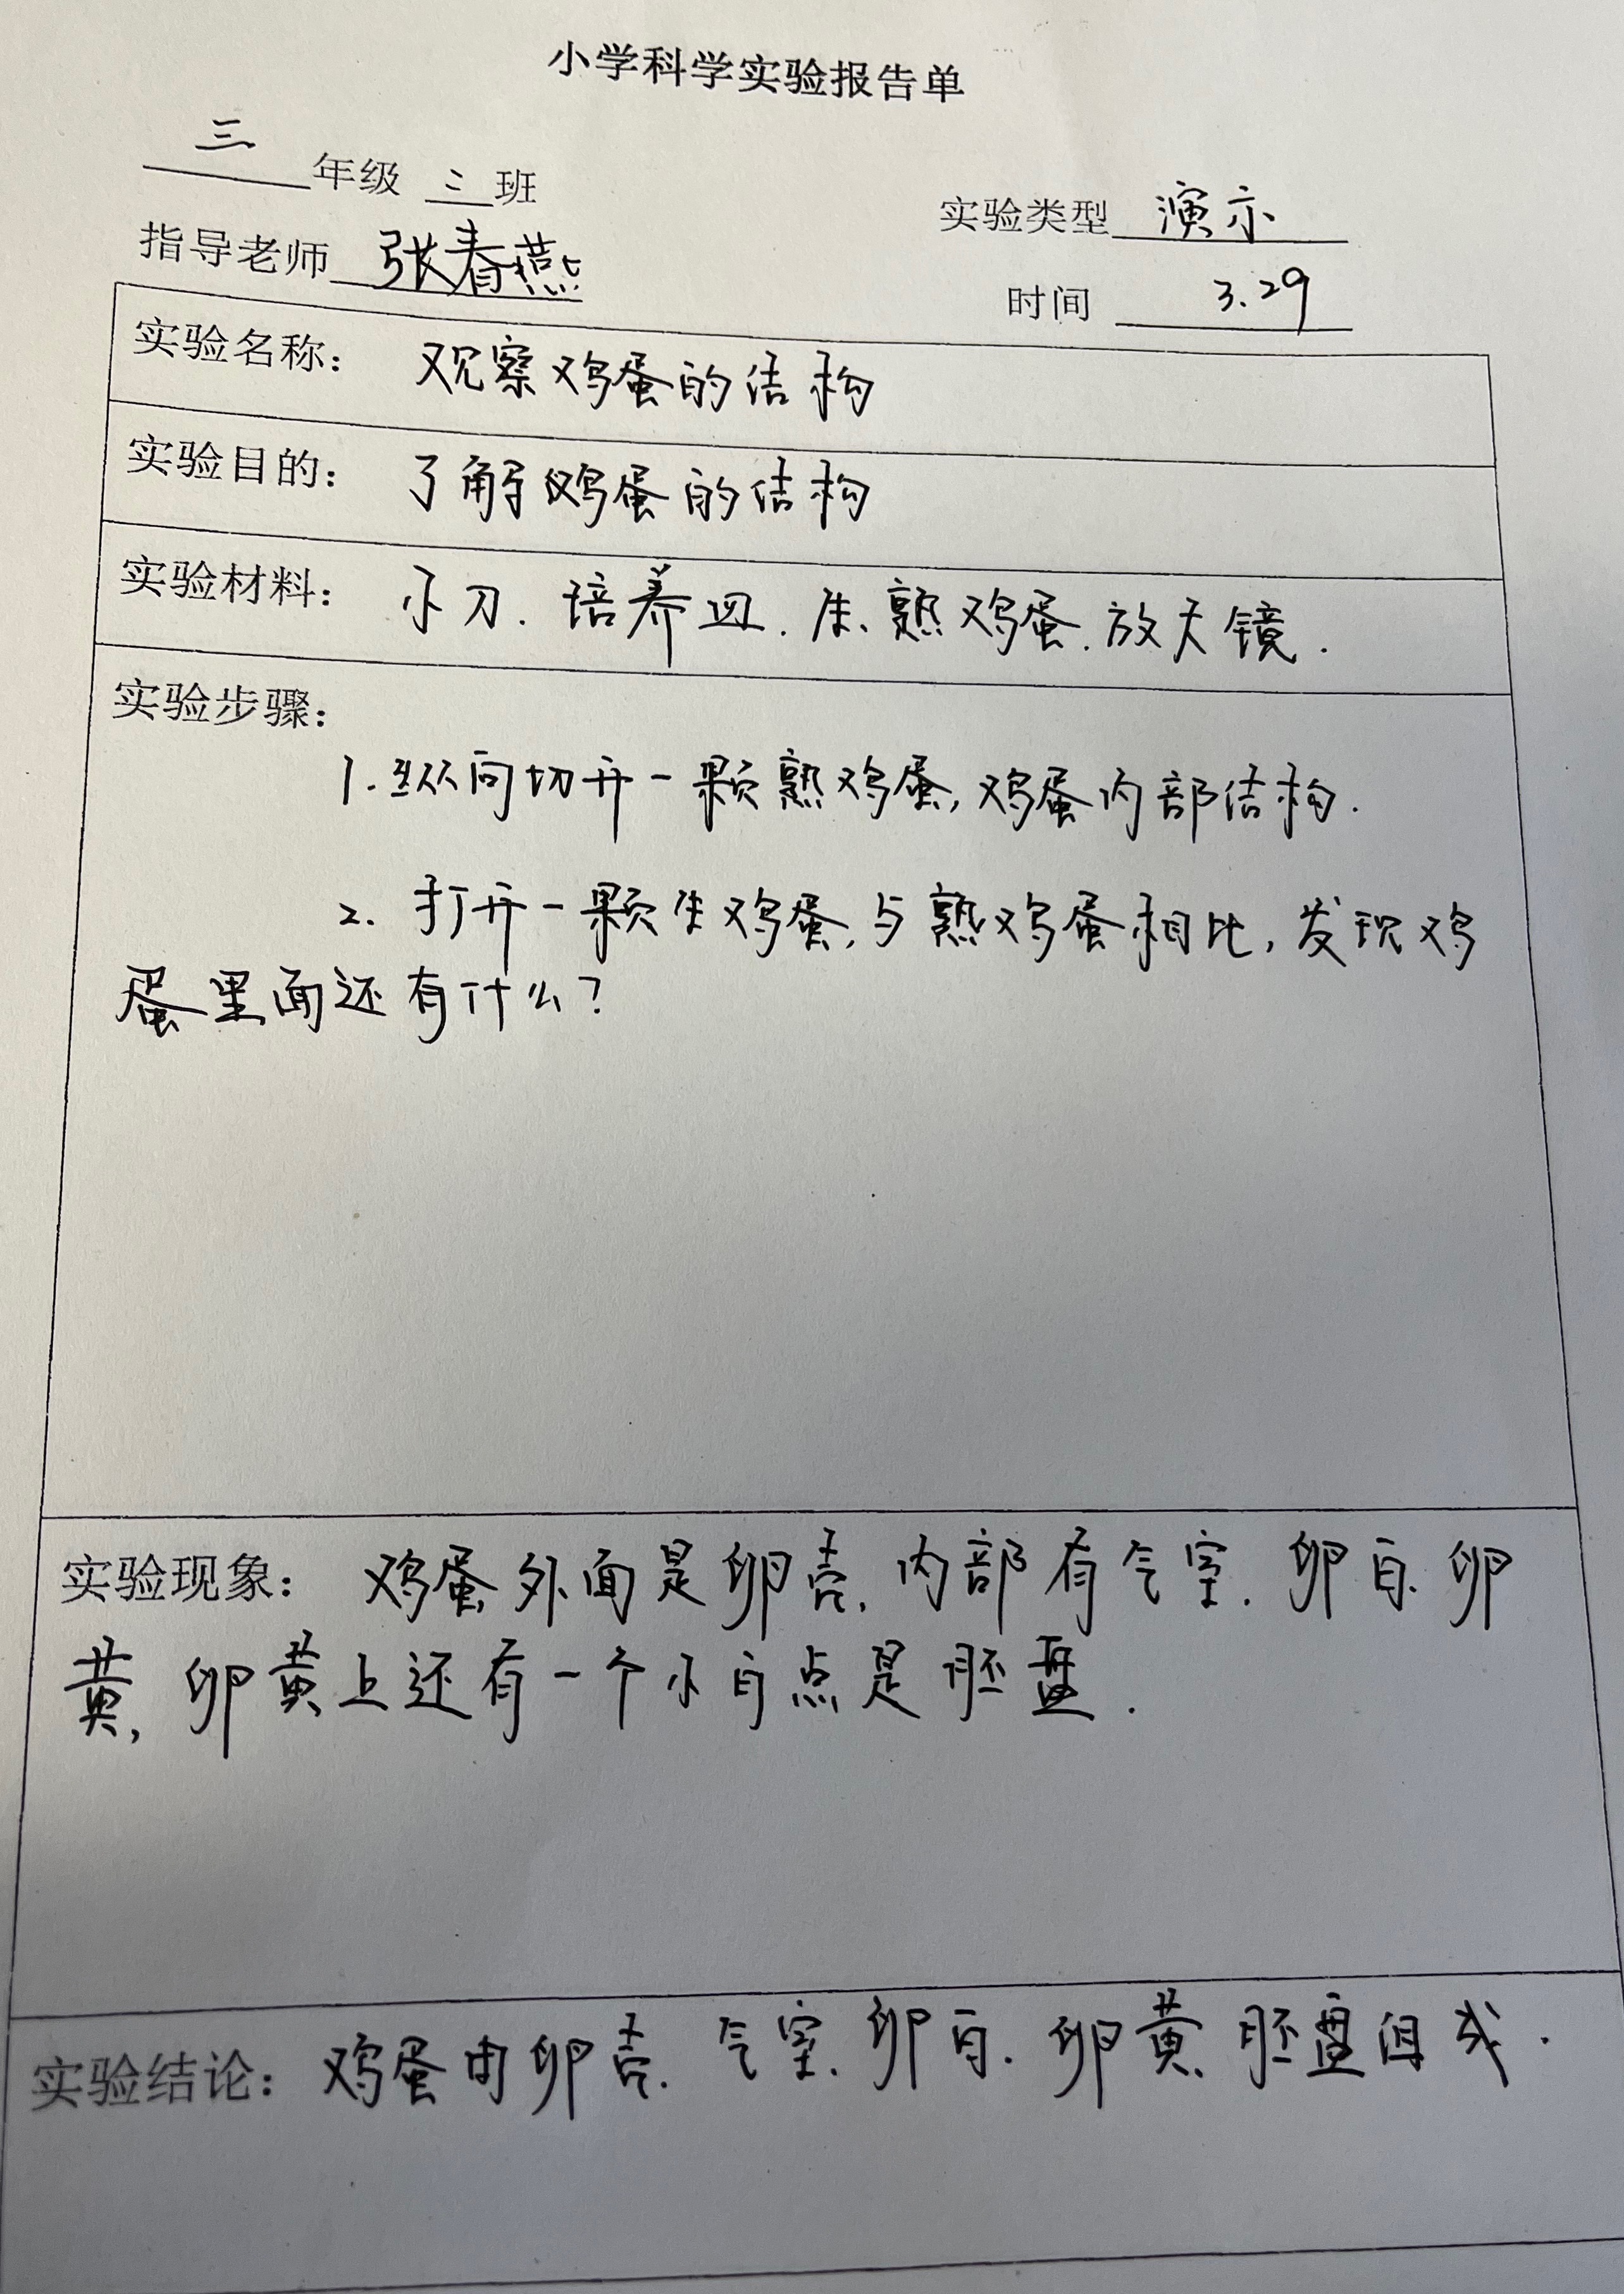 小学科学实验报告单
三 年级 三 班
实验类型 演示
指导老师 张春燕
时间 3.29
实验名称： 观察鸡蛋的结构
实验目的： 了解鸡蛋的结构
实验材料： 小刀、培养皿、生、熟鸡蛋、放大镜.
实验步骤：
1. 纵向切开一颗熟鸡蛋, 鸡蛋内部结构.
2. 打开一颗生鸡蛋, 与熟鸡蛋相比, 发现鸡
蛋里面还有什么?
实验现象： 鸡蛋外面是卵壳, 内部有气室、卵白、卵
黄, 卵黄上还有一个小白点是胚盘.
实验结论： 鸡蛋由卵壳、气室、卵白、卵黄、胚盘组成.